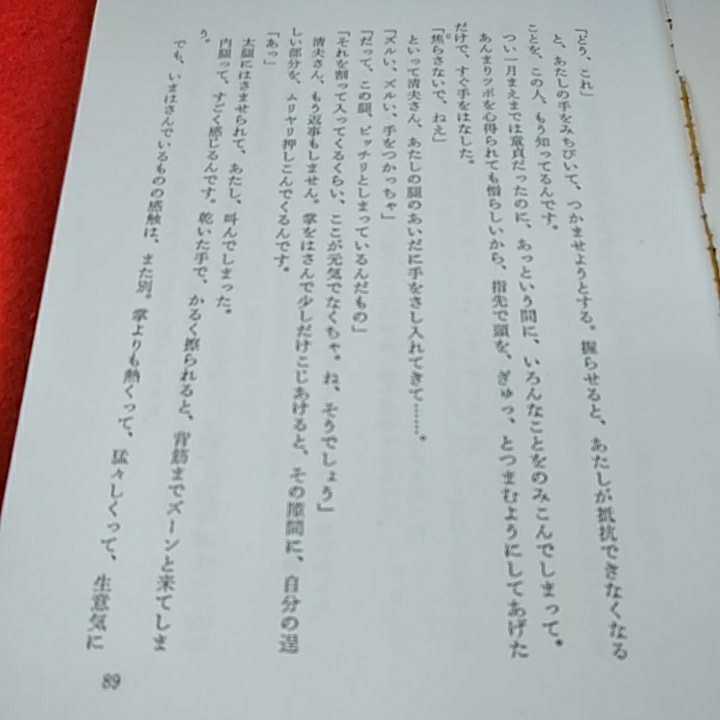 「どう、これ」
と、あたしの手をみちびいて、つかませようとする。握らせると、あたしが抵抗できなくなる
ことを、この人、もう知ってるんです。
つい一月まえまでは童貞だったのに、あっという間に、いろんなことをのみこんでしまって。
あんまりツボを心得られても憎らしいから、指先で頭を、ぎゅっ、とつまむようにしてあげた
だけで、すぐ手をはなした。
「焦らさないで、ねえ」
といって清夫さん、あたしの腿のあいだに手をさし入れてきて……。
「ズルい、ズルい、手をつかっちゃ」
「だって、この腿、ピッチリとしまっているんだもの」
「それを割って入ってくるくらい、ここが元気でなくちゃ。ね、そうでしょう」
清夫さん、もう返事もしません。掌をはさんで少しだけこじあけると、その隙間に、自分の逞
しい部分を、ムリヤリ押しこんでくるんです。
「あっ」
太腿にはさませられて、あたし、叫んでしまった。
内腿って、すごく感じるんです。乾いた手で、かるく擦られると、背筋までズーンと来てしま
う。
でも、いまはさんでいるものの感触は、また別。掌よりも熱くって、猛々しくって、生意気に
89